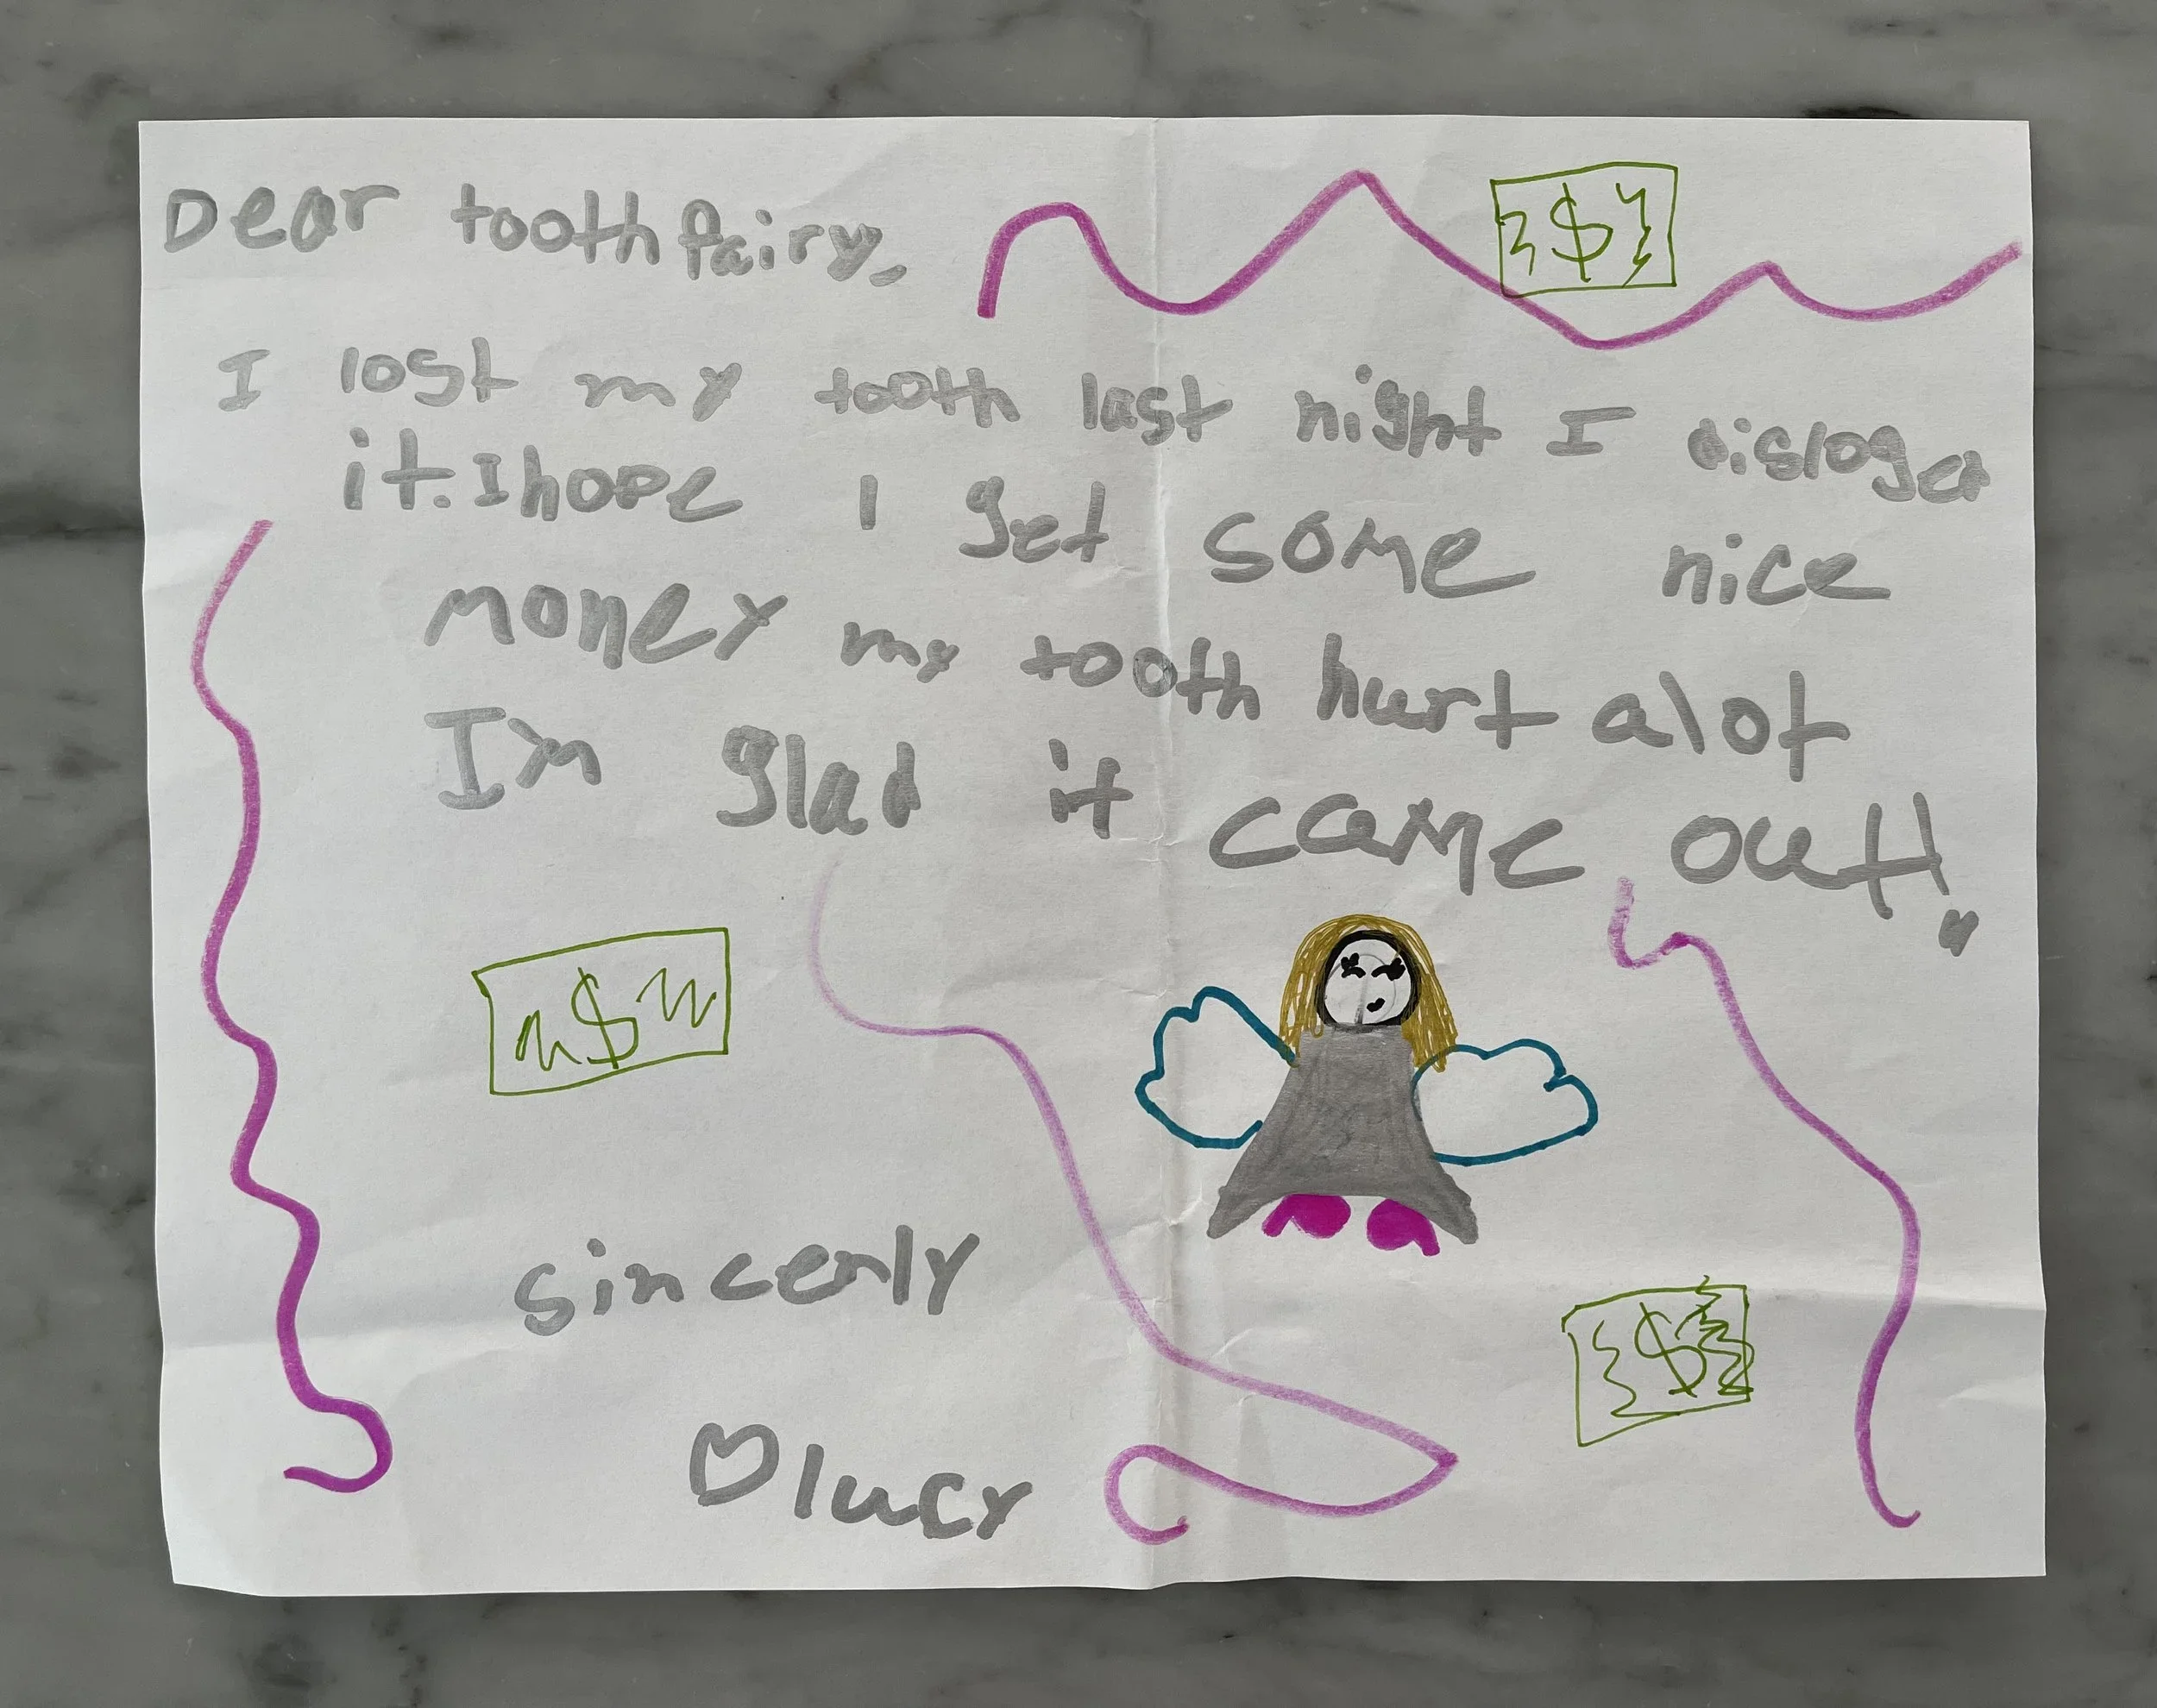 Dear tooth fairy,
$
I lost my tooth last night I disloged
it. I hope I get some nice
money my tooth hurt alot
Im glad it came out!!
$
sincerly
$
lucy